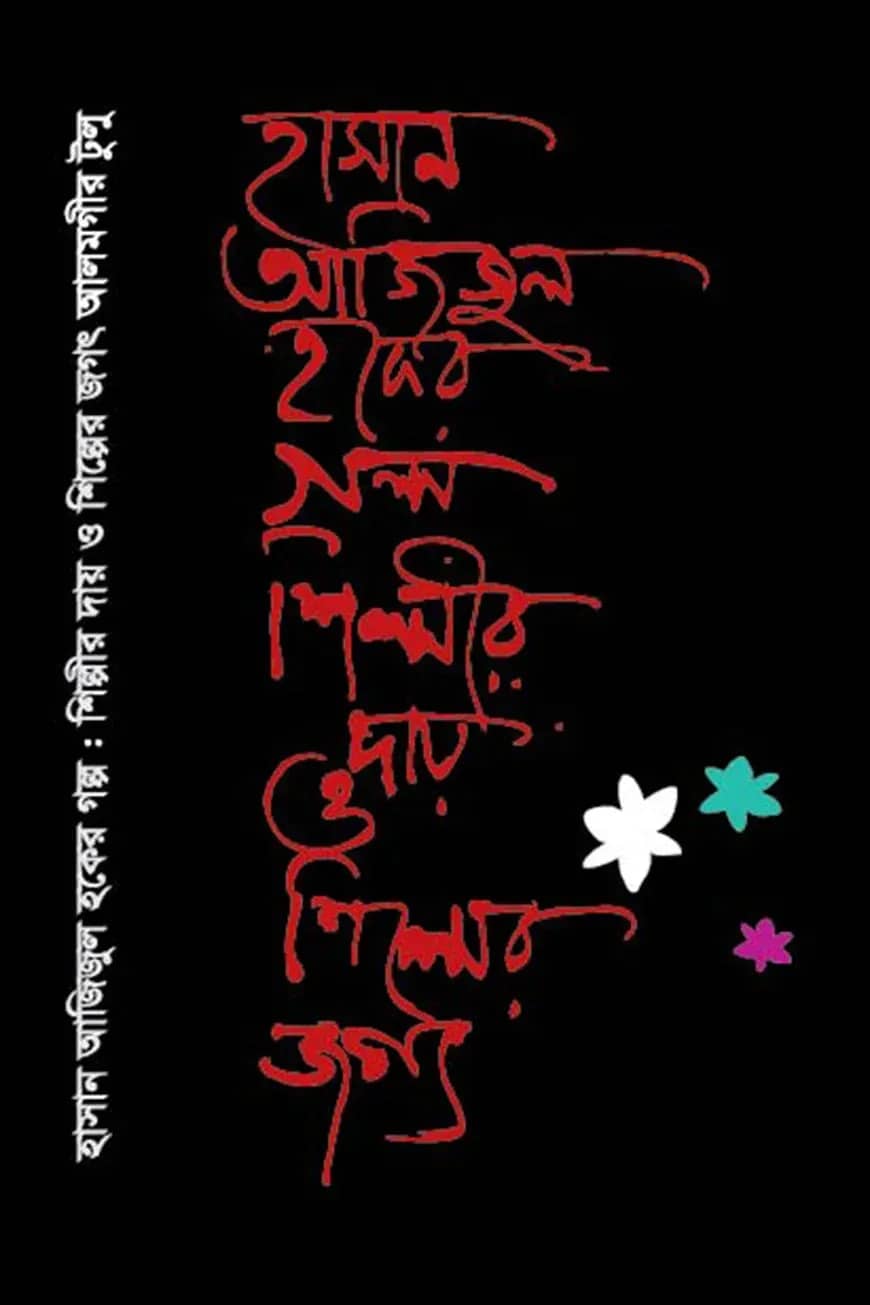 হাসান
আজিজুল
হকের
গল্প
শিল্পীর
দায়
ও
শিল্পের
জগৎ
হাসান আজিজুল হকের গল্প : শিল্পীর দায় ও শিল্পের জগৎ আলমগীর টুলু